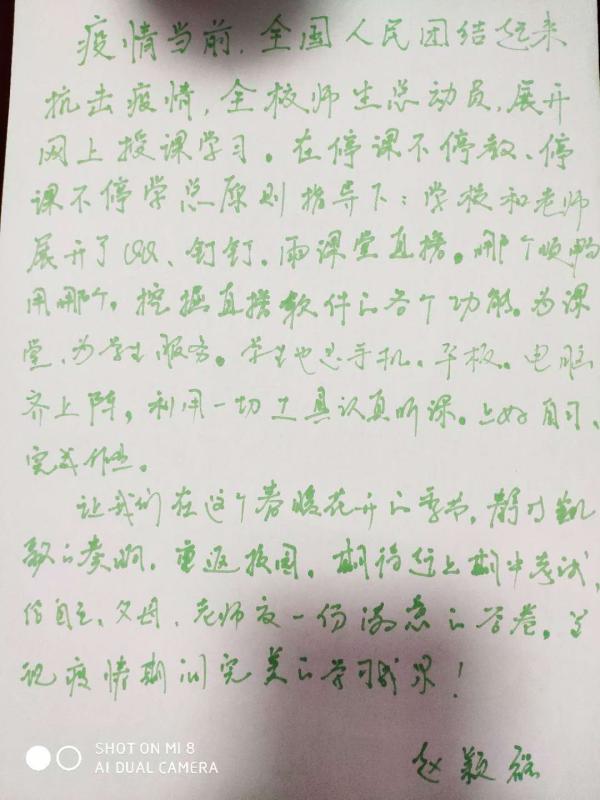 疫情当前,全国人民团结起来
抗击疫情,全校师生总动员,展开
网上授课学习。在停课不停教、停
课不停学总原则指导下:学校和老师
展开了QQ、钉钉、雨课堂直播。哪个顺畅
用哪个。挖掘直播软件的各个功能。为课
堂、为学生服务。学生也是手机、平板、电脑
齐上阵,利用一切工具认真听课。上好自习、
完成作业。
让我们在这个春暖花开的季节,静待凯
歌的奏响,重返校园,期待线上期中考试,
给自己、父母、老师交一份满意的答卷。
祝疫情期间完美的学习成果!
赵颖
SHOT ON MI 8
AI DUAL CAMERA